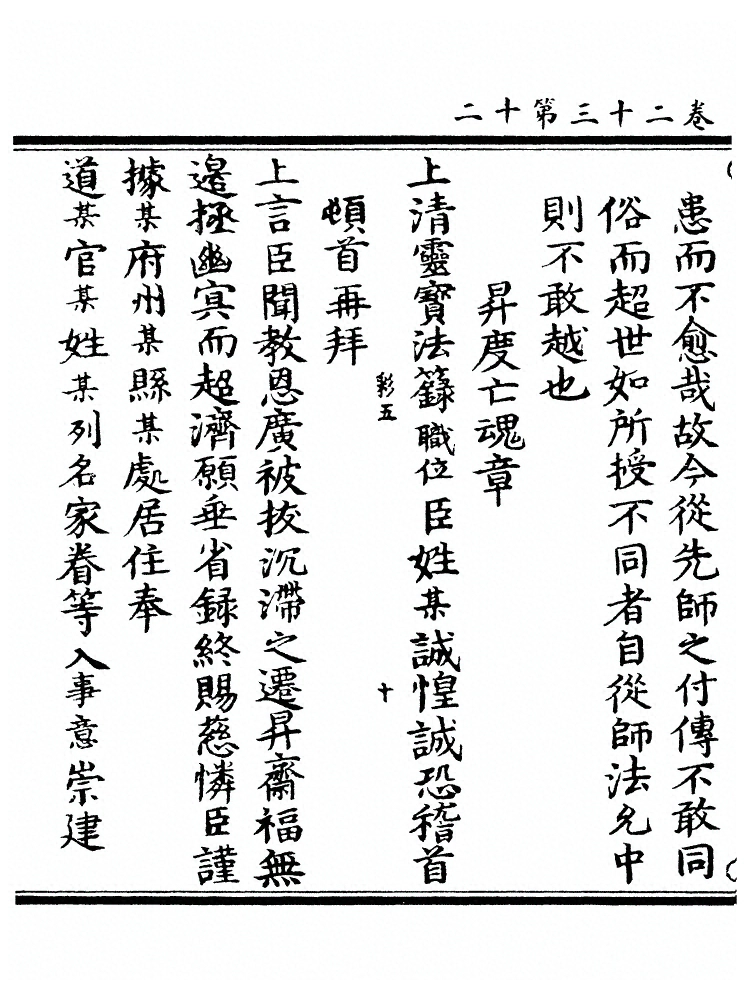 卷二十三第十二
患而不愈哉故今從先師之付傳不敢同
俗而超世如所授不同者自從師法允中
則不敢越也
昇度亡魂章
上清靈寶法籙職位臣姓某誠惶誠恐稽首
彩五 十
頓首再拜
上言臣聞教恩廣被拔沉滯之遷昇齋福無
邊拯幽冥而超濟願垂省録終賜慈憐臣謹
據某府州某縣某處居住奉
道某官某姓某列名家眷等入事意崇建